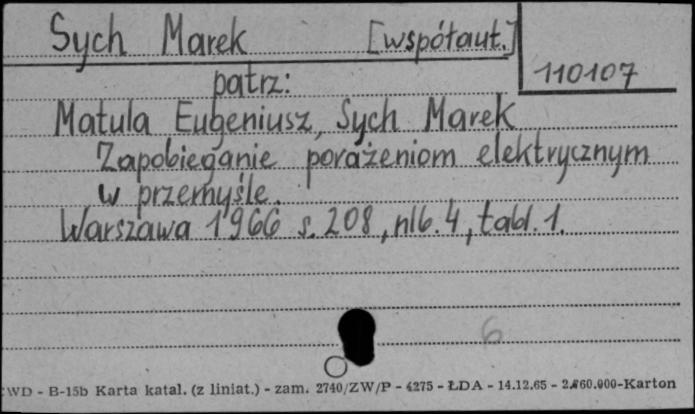 Sych Marek [współaut.]
110107
patrz:
Matula Eugeniusz, Sych Marek
Zapobieganie porażeniom elektrycznym
w przemyśle.
Warszawa 1966 s. 208, nlb. 4, tabl. 1.
6
WD - B-15b Karta katal. (z liniat.) - zam. 2740/ZW/P - 4275 - ŁDA - 14.12.65 - -Karton